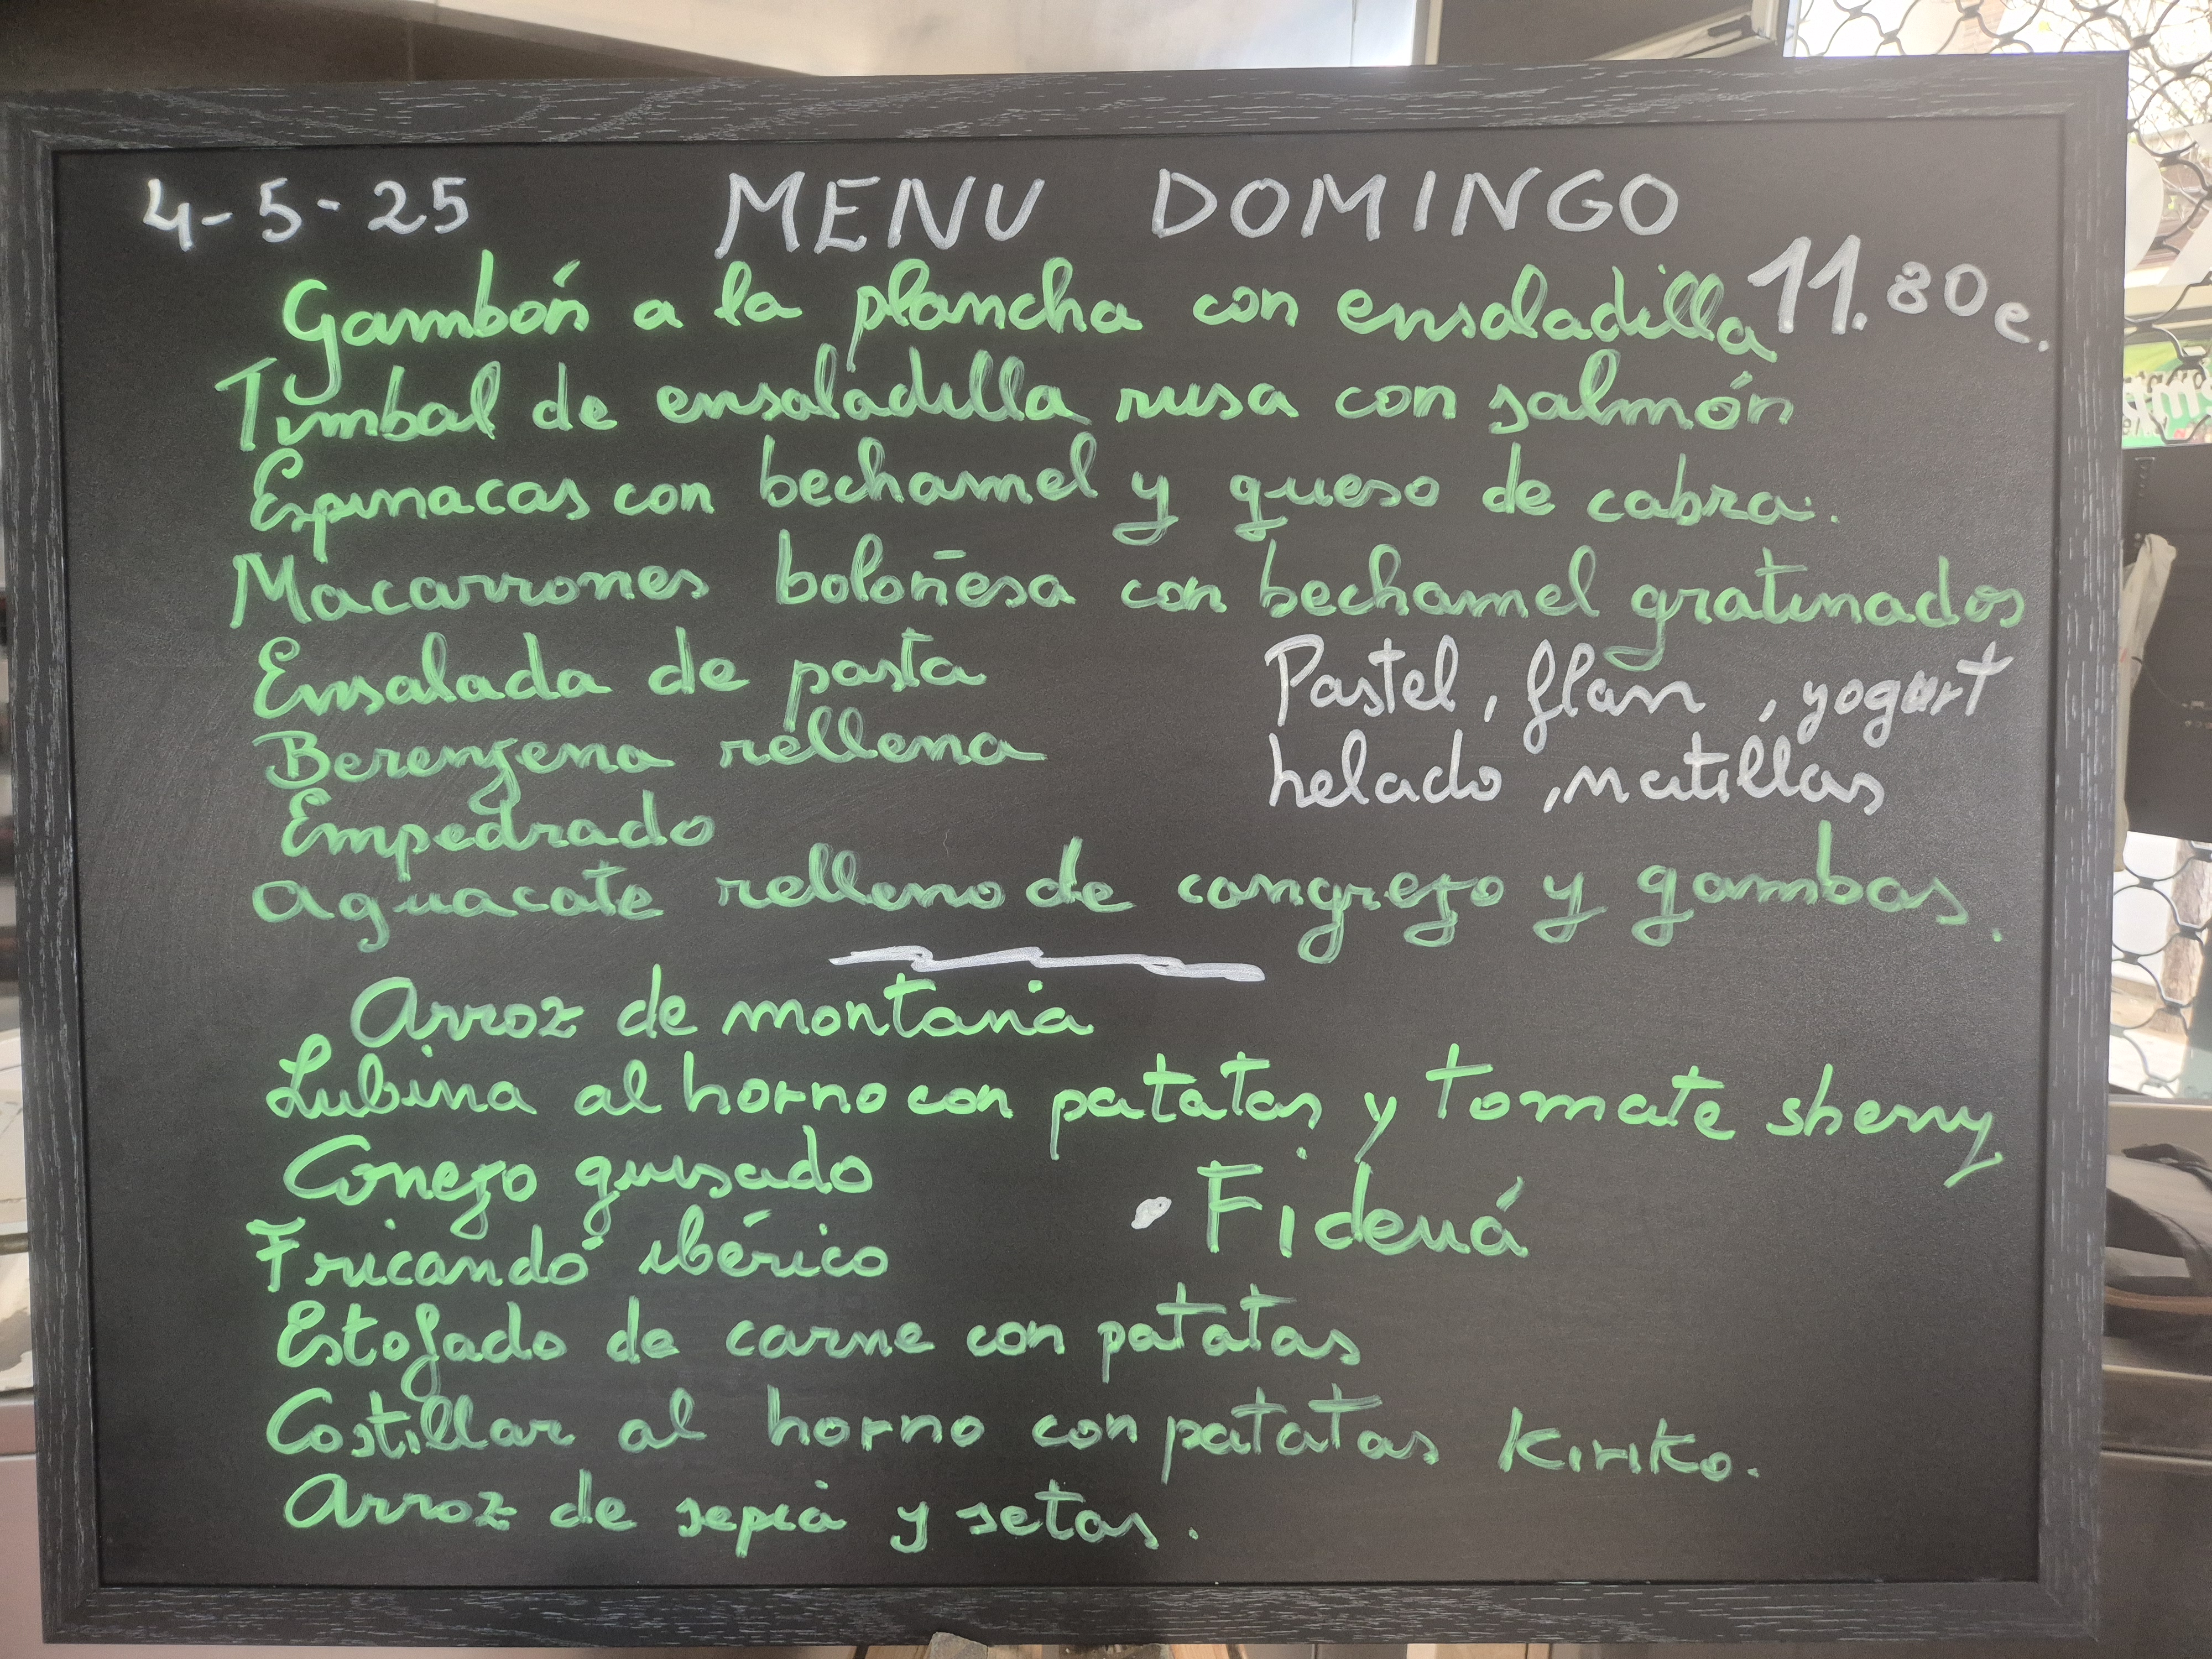 4-5-25 MENU DOMINGO
11.80 e.
Gambón a la plancha con ensaladilla
Timbal de ensaladilla rusa con salmón
Espinacas con bechamel y queso de cabra.
Macarrones boloñesa con bechamel gratinados
Ensalada de pasta
Berenjena rellena
Empedrado
Aguacate relleno de cangrejo y gambas.
Pastel, flan, yogurt
helado, natillas
Arroz de montaña
Lubina al horno con patatas y tomate sherry
Conejo guisado
Fricandó ibérico
· Fideuá
Estofado de carne con patatas
Costillar al horno con patatas Kiriko.
Arroz de sepia y setas.